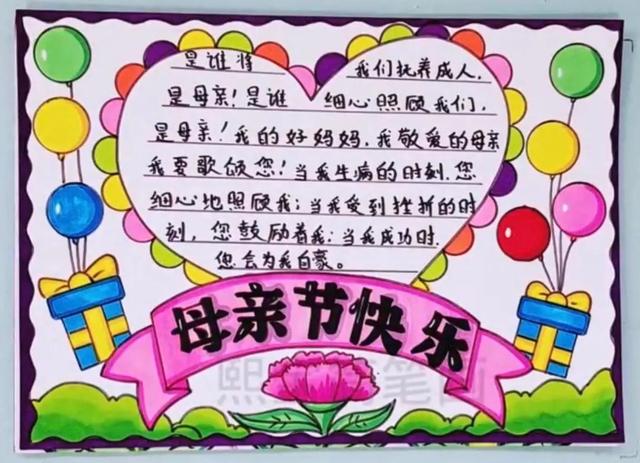 是谁将 我们抚养成人,
是母亲!是谁 细心照顾我们,
是母亲!我的好妈妈,我敬爱的母亲
我要歌颂您!当我生病的时刻,您
细心地照顾我;当我受到挫折的时
刻,您鼓励着我;当我成功时,
您会为我自豪。
母亲节快乐